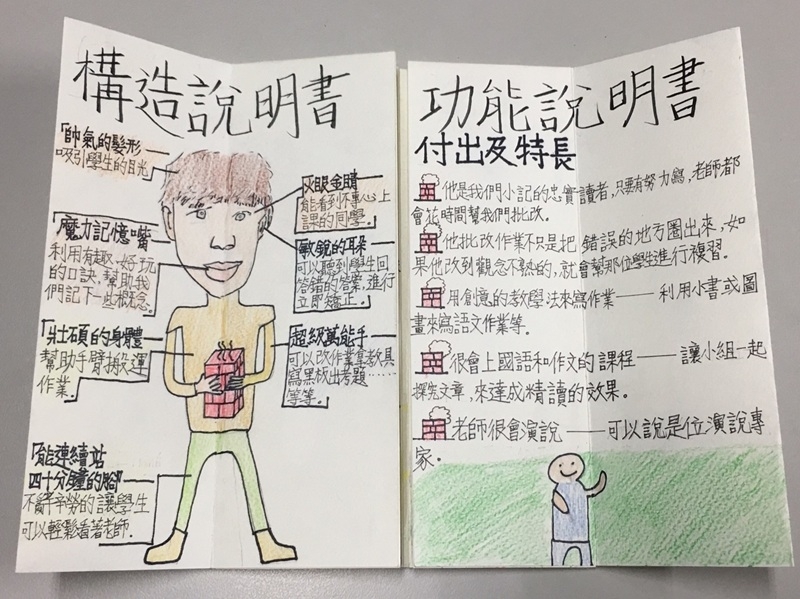 構造說明書
「帥氣的髮形
吸引學生的目光
魔力記憶嘴
利用有趣、好玩
的口訣,幫助我
們記下一些概念。
壯碩的身體
幫助手臂搬運
作業。
能連續站
四十分鐘的腳
不辭辛勞的讓學生
可以輕鬆看著老師。
火眼金睛
能看到不專心上
課的同學。
敏銳的耳朵
可以聽到學生回
答錯的答案,進行
立即矯正。
超級萬能手
可以改作業拿教具
寫黑板出考題……
等等。
功能說明書
付出及特長
他是我們小記的忠實讀者,只要有努力寫,老師都
會花時間幫我們批改。
他批改作業不只是把錯誤的地方圈出來,如
果他改到觀念不熟的,就會幫那位學生進行複習。
用創意的教學法來寫作業——利用小書或圖
畫來寫語文作業等。
很會上國語和作文的課程——讓小組一起
探究文章,來達成精讀的效果。
老師很會演說——可以說是位演說專
家。